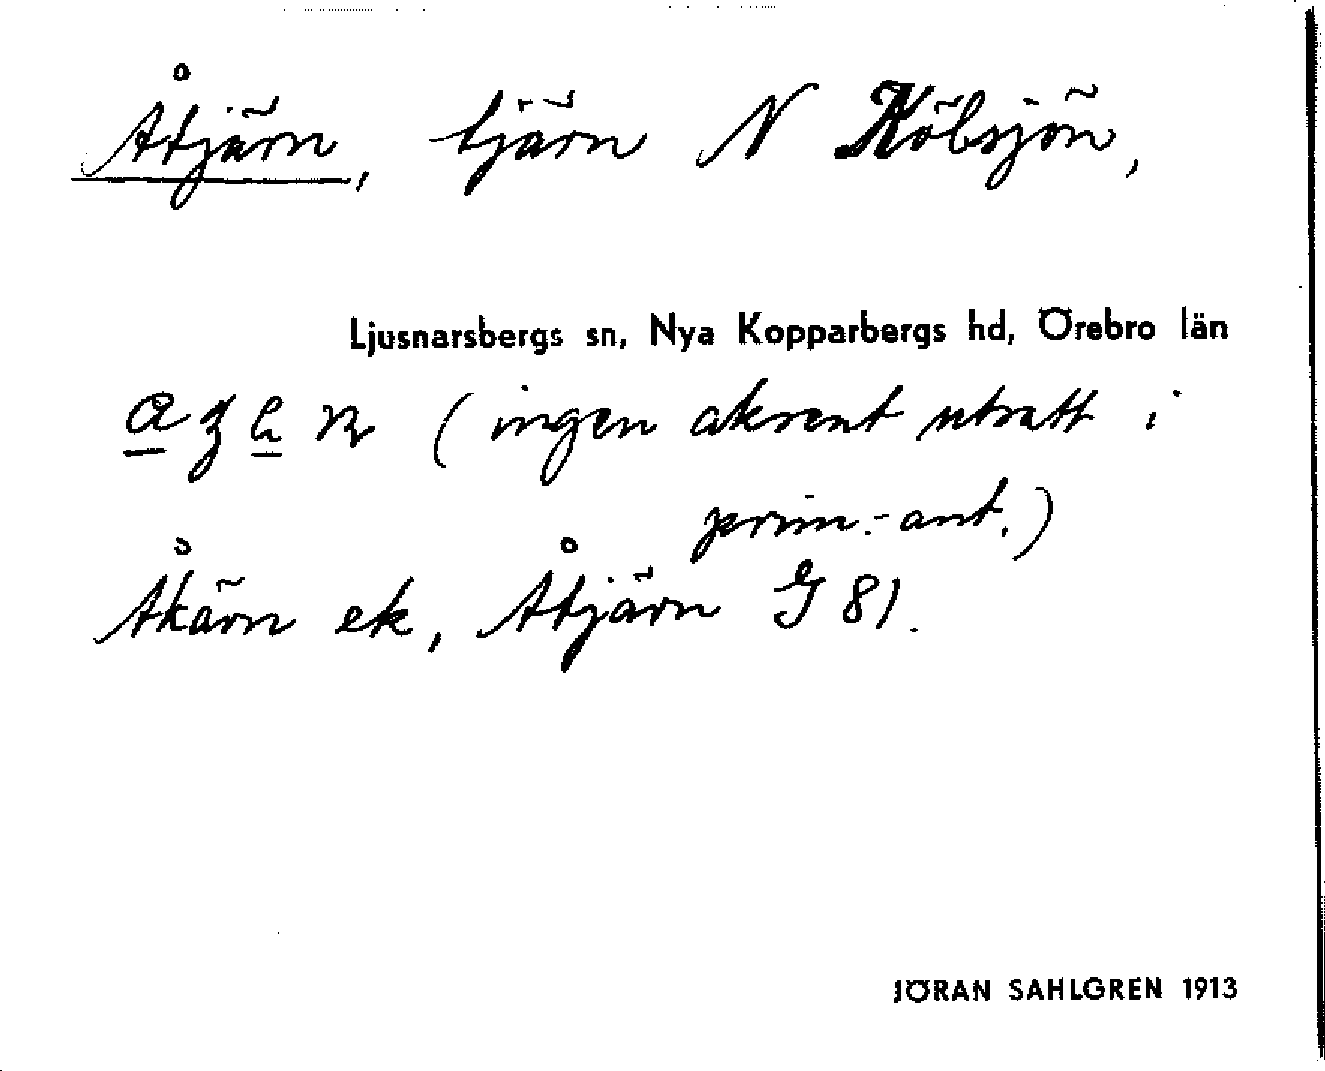 Åtjärn, tjärn N Kölsjön,
Ljusnarsbergs sn, Nya Kopparbergs hd, Örebro län
(ingen aksent utsatt i
prim.-ant.)
Åkärn ek, Åtjärn G 81.
JÖRAN SAHLGREN 1913